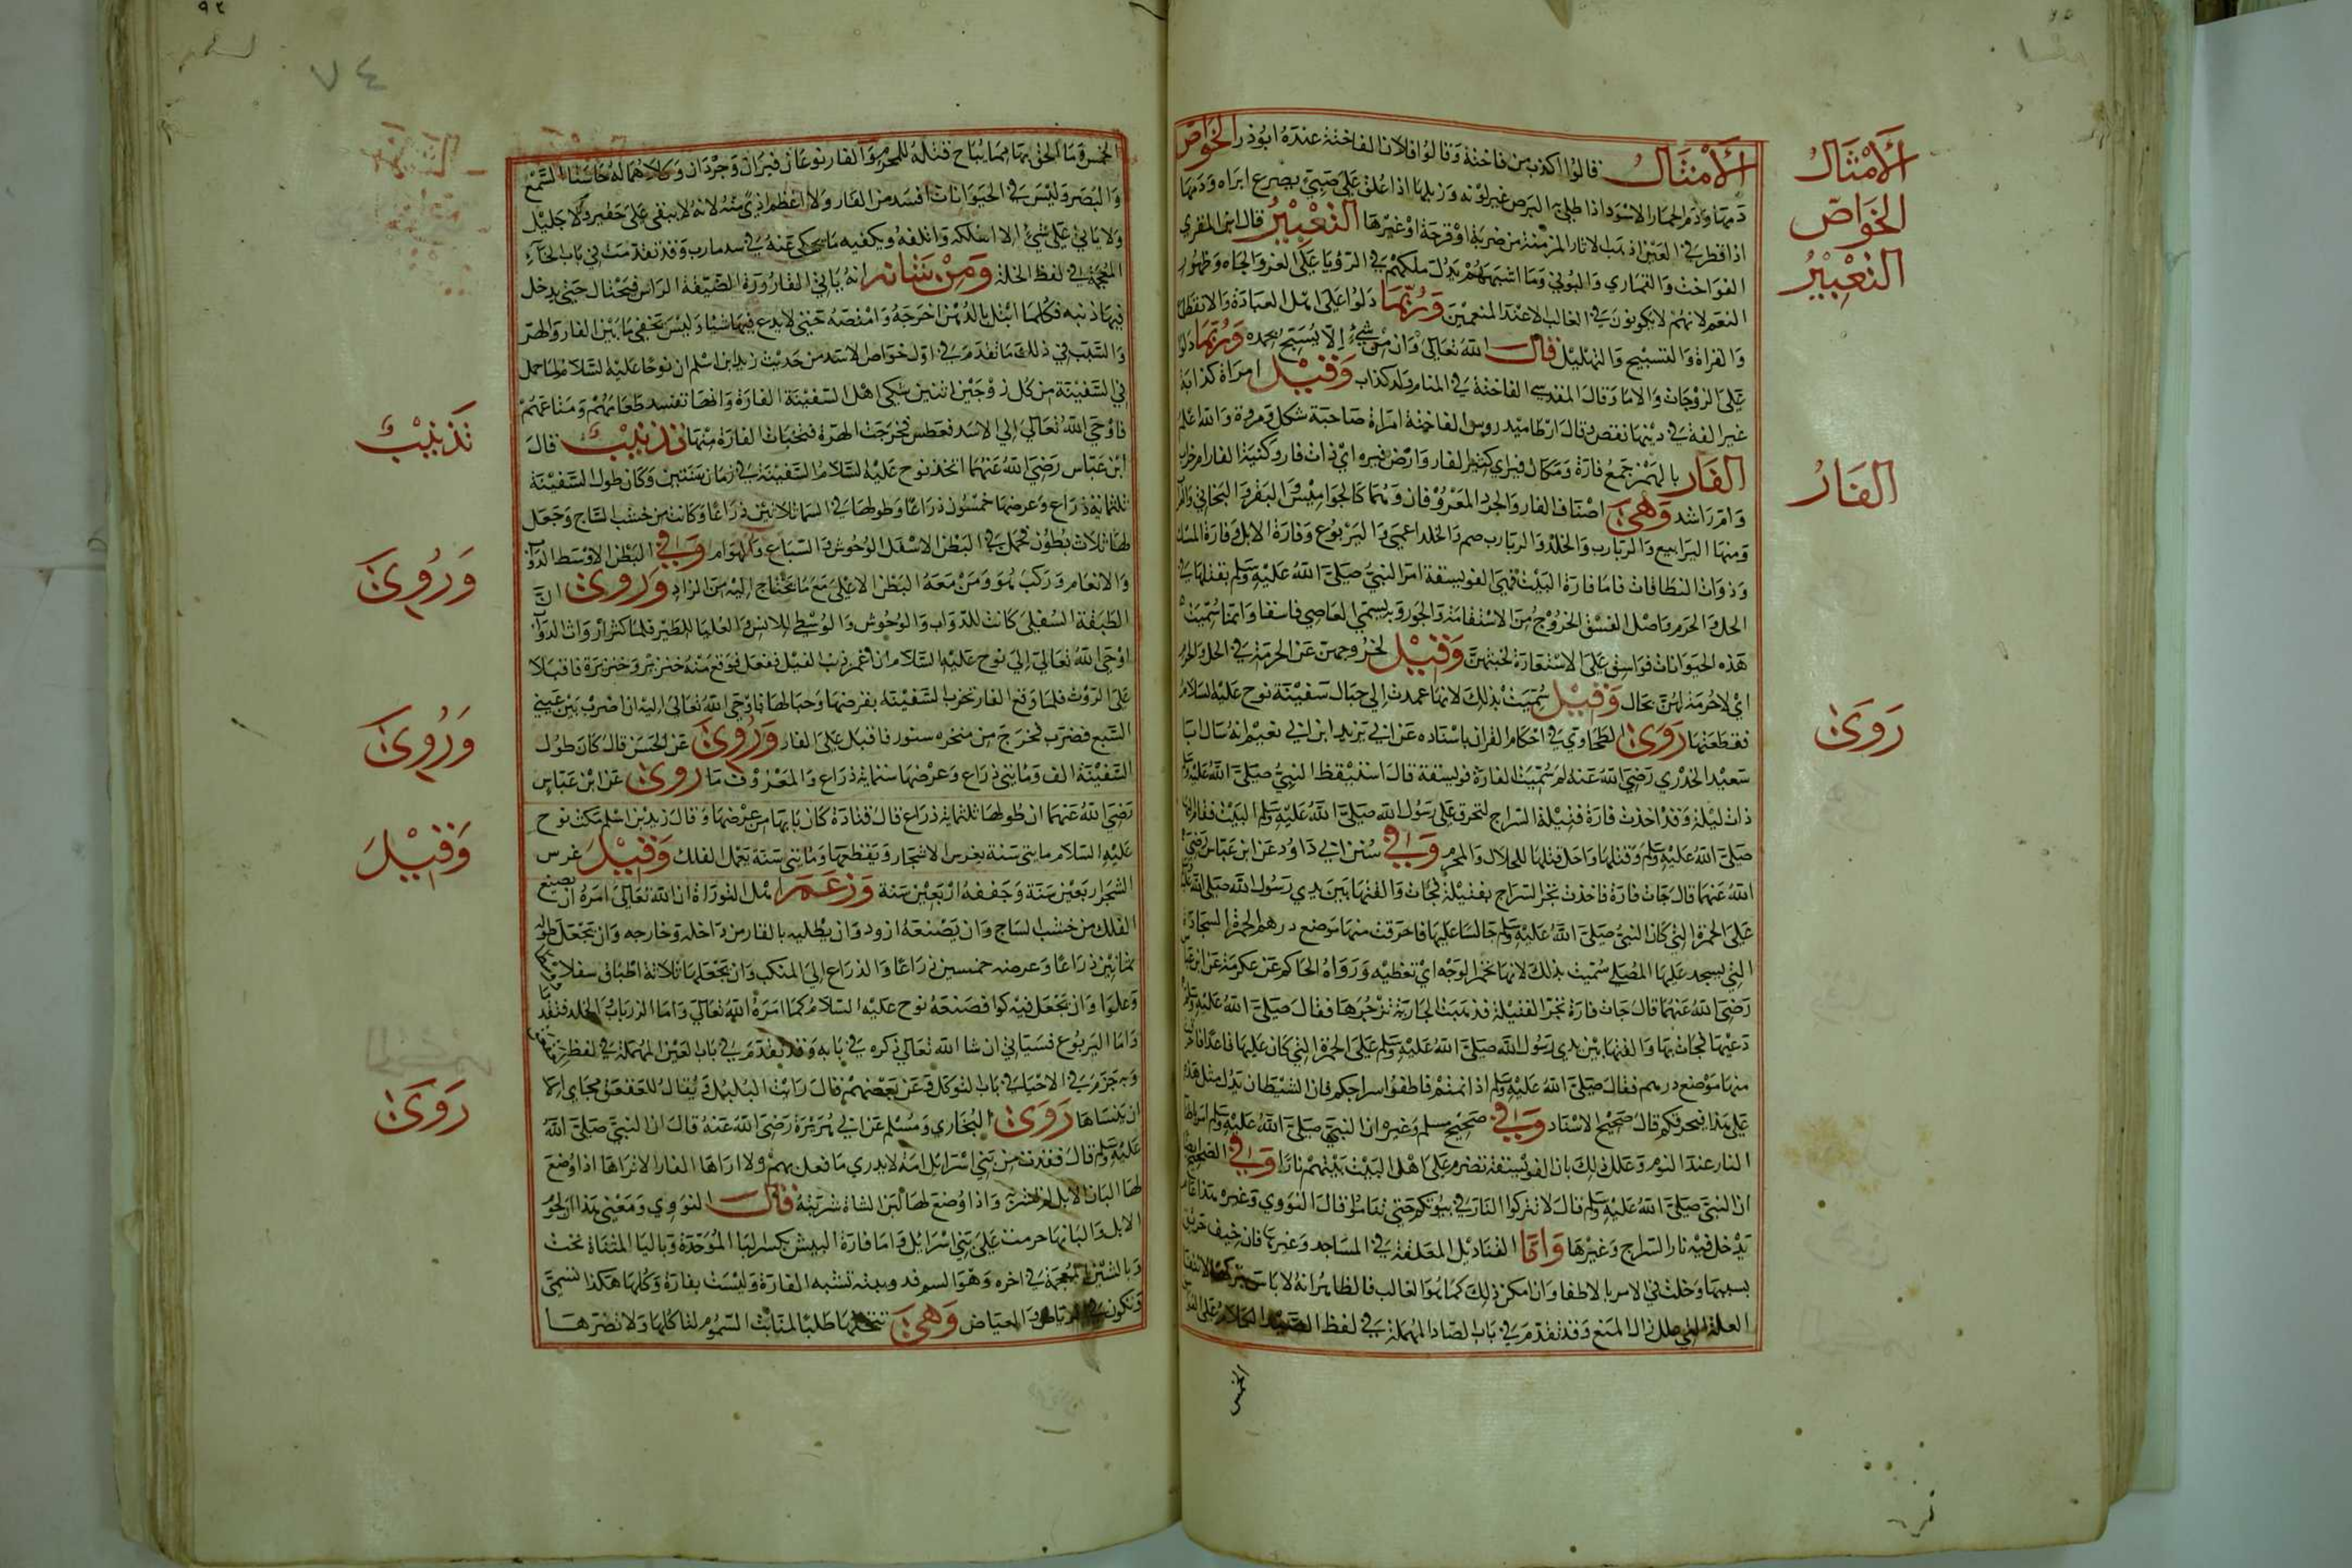 الأمثال
الخواص
التعبير
الأمثال قالوا اكذب من فاختة وقالوا فلان الفاختة عنده ابو ذر الخواص
دمها ودم الحمار الاسود اذا طلي به البرص غير لونه وزبلها اذا علق على صبي يصرع ابراه ودمها
اذا قطر في العين اذهب الاثار المزمنة من ضربة او قرحة او غيرها التعبير قال ابن المقري
الفواخت والقماري والبوني وما اشبههم يدل ملكهم في الرؤيا على العز والجاه وظهور
النعم لانهم لا يكونون في الغالب الا عند المنعمين وربما دلوا على اهل العبادة والانقطاع
والقراة والتسبيح والتهليل قال الله تعالى وان من شيء إلا يسبح بحمده وربما دلوا
على الزوجات والاما وقال المقدسي الفاختة في المنام ولد كذاب وقيل امراة كذابة
غير الفة في دينها نقص وقال ارطاميدروس الفاختة امراة صاحبة شكل ومروة والله اعلم
الفار
الفار بالهمز جمع فارة ومكان فير اي كثير الفار وارض فيرة اي ذات فار وكنية الفار ام خراب
وام راشد وهي اصناف الفار والجرذ المعروفان وهما كالجواميس والبقر والبخاتي والعراب
ومنها اليرابيع والزبابرب والخلد والزبابرب صم والخلد اعمى واليربوع وفارة الابل وفارة المسك
وذوات النطاقات فاما فارة البيت فهي الفويسقة امر النبي صلى الله عليه وسلم بقتلها في
الحل والحرم واصل الفسق الخروج من الاستقامة والجور وبه يسمى العاصي فاسقا وانما سميت
هذه الحيوانات فواسق على الاستعارة لخبثهن وقيل لخروجهن عن الحرمة في الحل والحرم
اي لا حرمة لهن بحال وقيل سميت بذلك لانها عمدت الي حبال سفينة نوح عليه السلام
روى
فقطعتها روى الطحاوي في احكام القران باسناده عن ابي يزيد ابن ابي نعيم انه سال ابا
سعيد الخدري رضي الله عنه لم سميت الفارة فويسقة قال استيقظ النبي صلى الله عليه وسلم
ذات ليلة وقد اخذت فارة فتيلة السراج لتحرق على رسول الله صلى الله عليه وسلم البيت فقام
صلى الله عليه وسلم وقتلها واحل قتلها للحلال والمحرم وفي سنن ابي داود عن ابن عباس رضي
الله عنهما قال جات فارة فاخذت تجر السراج بفتيلة فجات والقتها بين يدي رسول الله صلى الله عليه
على الخمرة التي كان النبي صلى الله عليه وسلم جالسا عليها فاحرقت منها موضع درهم الخمرة السجادة
التي يسجد عليها المصلي سميت بذلك لانها تخمر الوجه اي تغطيه ورواه الحاكم عن عكرمة عن ابن
رضي الله عنهما قال جات فارة تجر الفتيلة فذهبت الجارية تزجرها فقال صلى الله عليه وسلم
دعيها فجات بها والقتها بين يدي رسول الله صلى الله عليه وسلم على الخمرة التي كان عليها قاعدا
منها موضع درهم فقال صلى الله عليه وسلم اذا نمتم فاطفوا سراجكم فان الشيطان يدل مثل هذه
على هذا فيحرقكم قال صحيح الاسناد وفي صحيح مسلم وغيره ان النبي صلى الله عليه وسلم امر
النار عند النوم وعلل ذلك بان الفويسقة تضرم على اهل البيت بيتهم نارا وفي الصحيح
ان النبي صلى الله عليه وسلم قال لا تتركوا النار في بيوتكم حتى تناموا قال النووي وغيره هذا عام
يدخل فيه نار السراج وغيرها واما القناديل المعلقة في المساجد وغيرها فان خيف حريق
بسببها دخلت في الامر بالاطفا وان امكن ذلك كما هو الغالب فالظاهر انه لا باس بتركها
العلة التي علل المنع وقد تقدم في باب الصاد المهملة في لفظ الصيد الكلام على
الخمس
٧٤
الخمس وما الحق بها مما يباح قتله للمحرم والفار نوعان فيران وجرذان وكلاهما له حاستا السمع
والبصر وليس في الحيوانات افسد من الفار ولا اعظم اذى منه لانه لا يبقي على حقير ولا جليل
ولا ياتي على شي الا اهلكه واتلفه ويكفيه ما يحكى عنه في سد مارب وقد تقدمت في باب الخاء
المعجمة في لفظ الخلد ومن شانه انه ياتي القارورة الضيقة الراس فيحتال حتى يدخل
فيها ذنبه فكلما ابتل بالدهن اخرجه وامتصه حتى لا يدع فيها شيا وليس يخفى ما بين الفار والهر
والسبب في ذلك ما تقدم في اول خواص الاسد من حديث زيد ابن اسلم ان نوحا عليه السلام لما حمل
في السفينة من كل زوجين اثنين شكى اهل السفينة الفارة وانها تفسد طعامهم ومتاعهم
تذنيب
فاوحى الله تعالى الي الاسد فعطس فخرجت الهرة فتخبات الفارة منها تذنيب قال
ابن عباس رضي الله عنهما اتخذ نوح عليه السلام السفينة في زمان سنتين وكان طول السفينة
ثلثماية ذراع وعرضها خمسون ذراعا وطولها في السما ثلاثين ذراعا وكانت من خشب الساج وجعل
لها ثلاث بطون فحمل في البطن الاسفل الوحوش والسباع والهوام وفي البطن الاوسط الدواب
وروي
والانعام وركب هو ومن معه البطن الاعلى مع ما يحتاج اليه من الزاد وروي ان
الطبقة السفلى كانت للدواب والوحوش والوسطى للانس والعليا للطير فلما كثر ارواث الدواب
اوحى الله تعالى الي نوح عليه السلام ان اغمز ذنب الفيل ففعل فوقع منه خنزير وخنزيرة فاقبلا
على الروث فلما وقع الفار بخرب السفينة بقرضها وحبالها فاوحى الله تعالى اليه ان اضرب بين عيني
وروي
السبع فضرب فخرج من منخره سنور فاقبل على الفار وروي عن الحسن قال كان طول
السفينة الف ومايتي ذراع وعرضها ستماية ذراع والمعروف ما روي عن ابن عباس
رضي الله عنهما ان طولها ثلثماية ذراع قال قتادة كان بابها من عرضها وقال زيد بن اسلم مكث نوح
وقيل
عليه السلام مايتي سنة يغرس الاشجار ويقطعها ومايتي سنة يعمل الفلك وقيل غرس
الشجر اربعين سنة وجففه اربعين سنة وزعم اهل التوراة ان الله تعالى امره ان يصنع
الفلك من خشب الساج وان يصنعه ازور وان يطليه بالقار من داخله وخارجه وان يجعل طوله
ثمانين ذراعا وعرضه خمسين ذراعا والذراع الي المنكب وان يجعلها ثلاثة اطباق سفلا
وعلوا وان يجعل فيه كوا فصنعه نوح عليه السلام كما امره الله تعالى واما الزرباب الخلد فتقد
واما اليربوع فسياتي ان شا الله تعالى ذكره في بابه وقد تقدم في باب العين المهملة في لفظ
وبه جزم في الاحيا في باب التوكل وعن بعضهم قال رايت البلبل ويقال للعقعق مخابي
روى
ان ينساها روى البخاري ومسلم عن ابي هريرة رضي الله عنه قال ان النبي صلى الله
عليه وسلم قال فقدت من بني اسرائيل امة لا يدري ما فعل بهم ولا اراها الفار الا تراها اذا وضع
لها البان الابل لم تشربه واذا وضع لها لبن الشاة شربته قال النووي ومعنى هذا ان لحوم
الابل والبانها حرمت على بني اسرائيل واما فارة البيش بكسر البا الموحدة وباليا المثناة تحت
وبالشين المعجمة في اخره وهو السم فدويبة تشبه الفارة وليست بفارة وكلها هكذا تسمى
وتكون في الرياض والغياض وهي تتخللها طلبا لمنابت السموم لتاكلها ولا تضرها